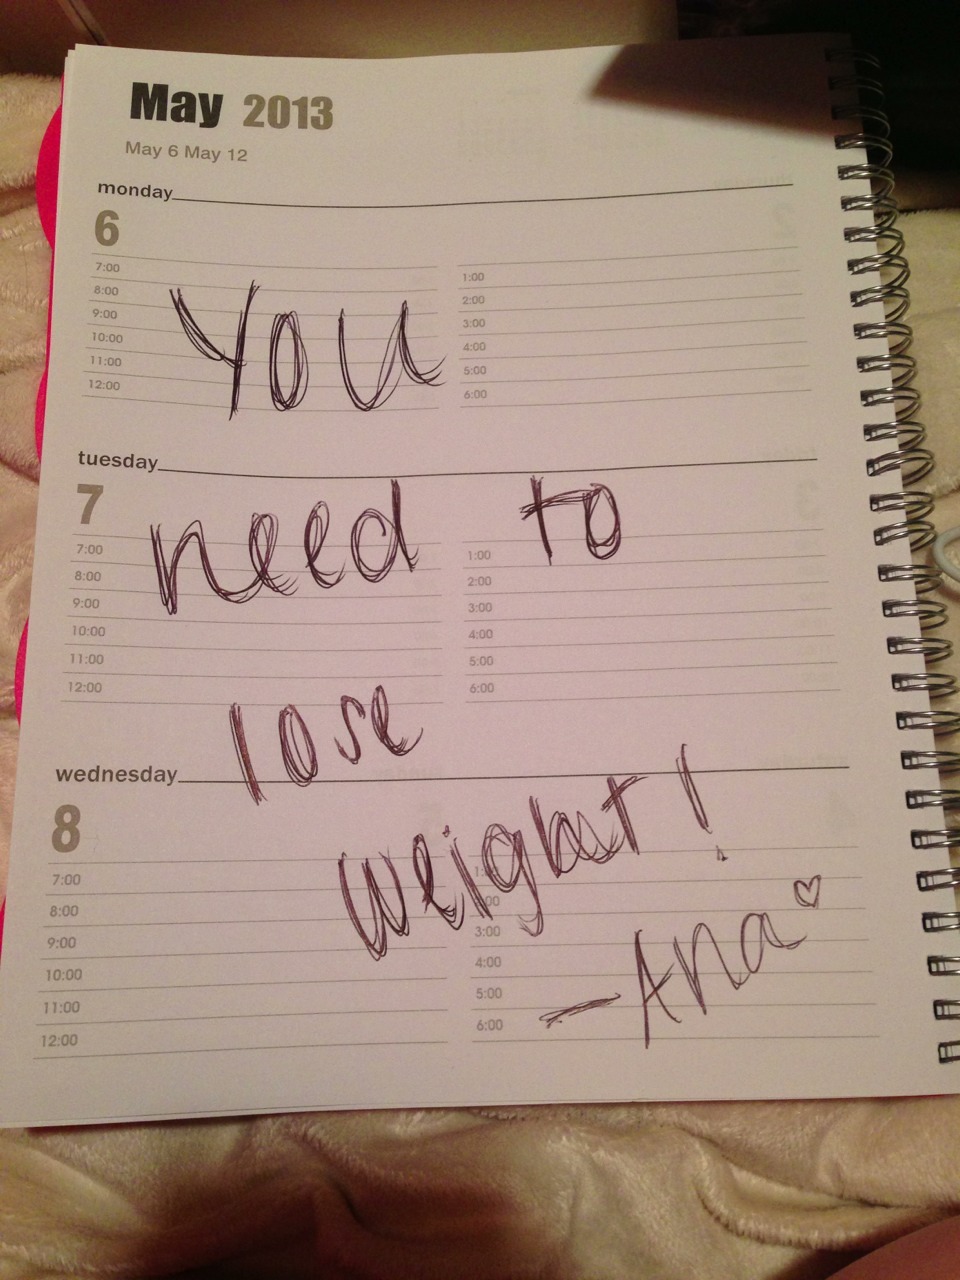 May 2013
May 6 May 12
monday
6
7:00
8:00
9:00
10:00
11:00
12:00
1:00
2:00
3:00
4:00
5:00
6:00
You
tuesday
7
7:00
8:00
9:00
10:00
11:00
12:00
1:00
2:00
3:00
4:00
5:00
6:00
need to
lose
wednesday
8
7:00
8:00
9:00
10:00
11:00
12:00
3:00
4:00
5:00
6:00
weight!
-Ana♡